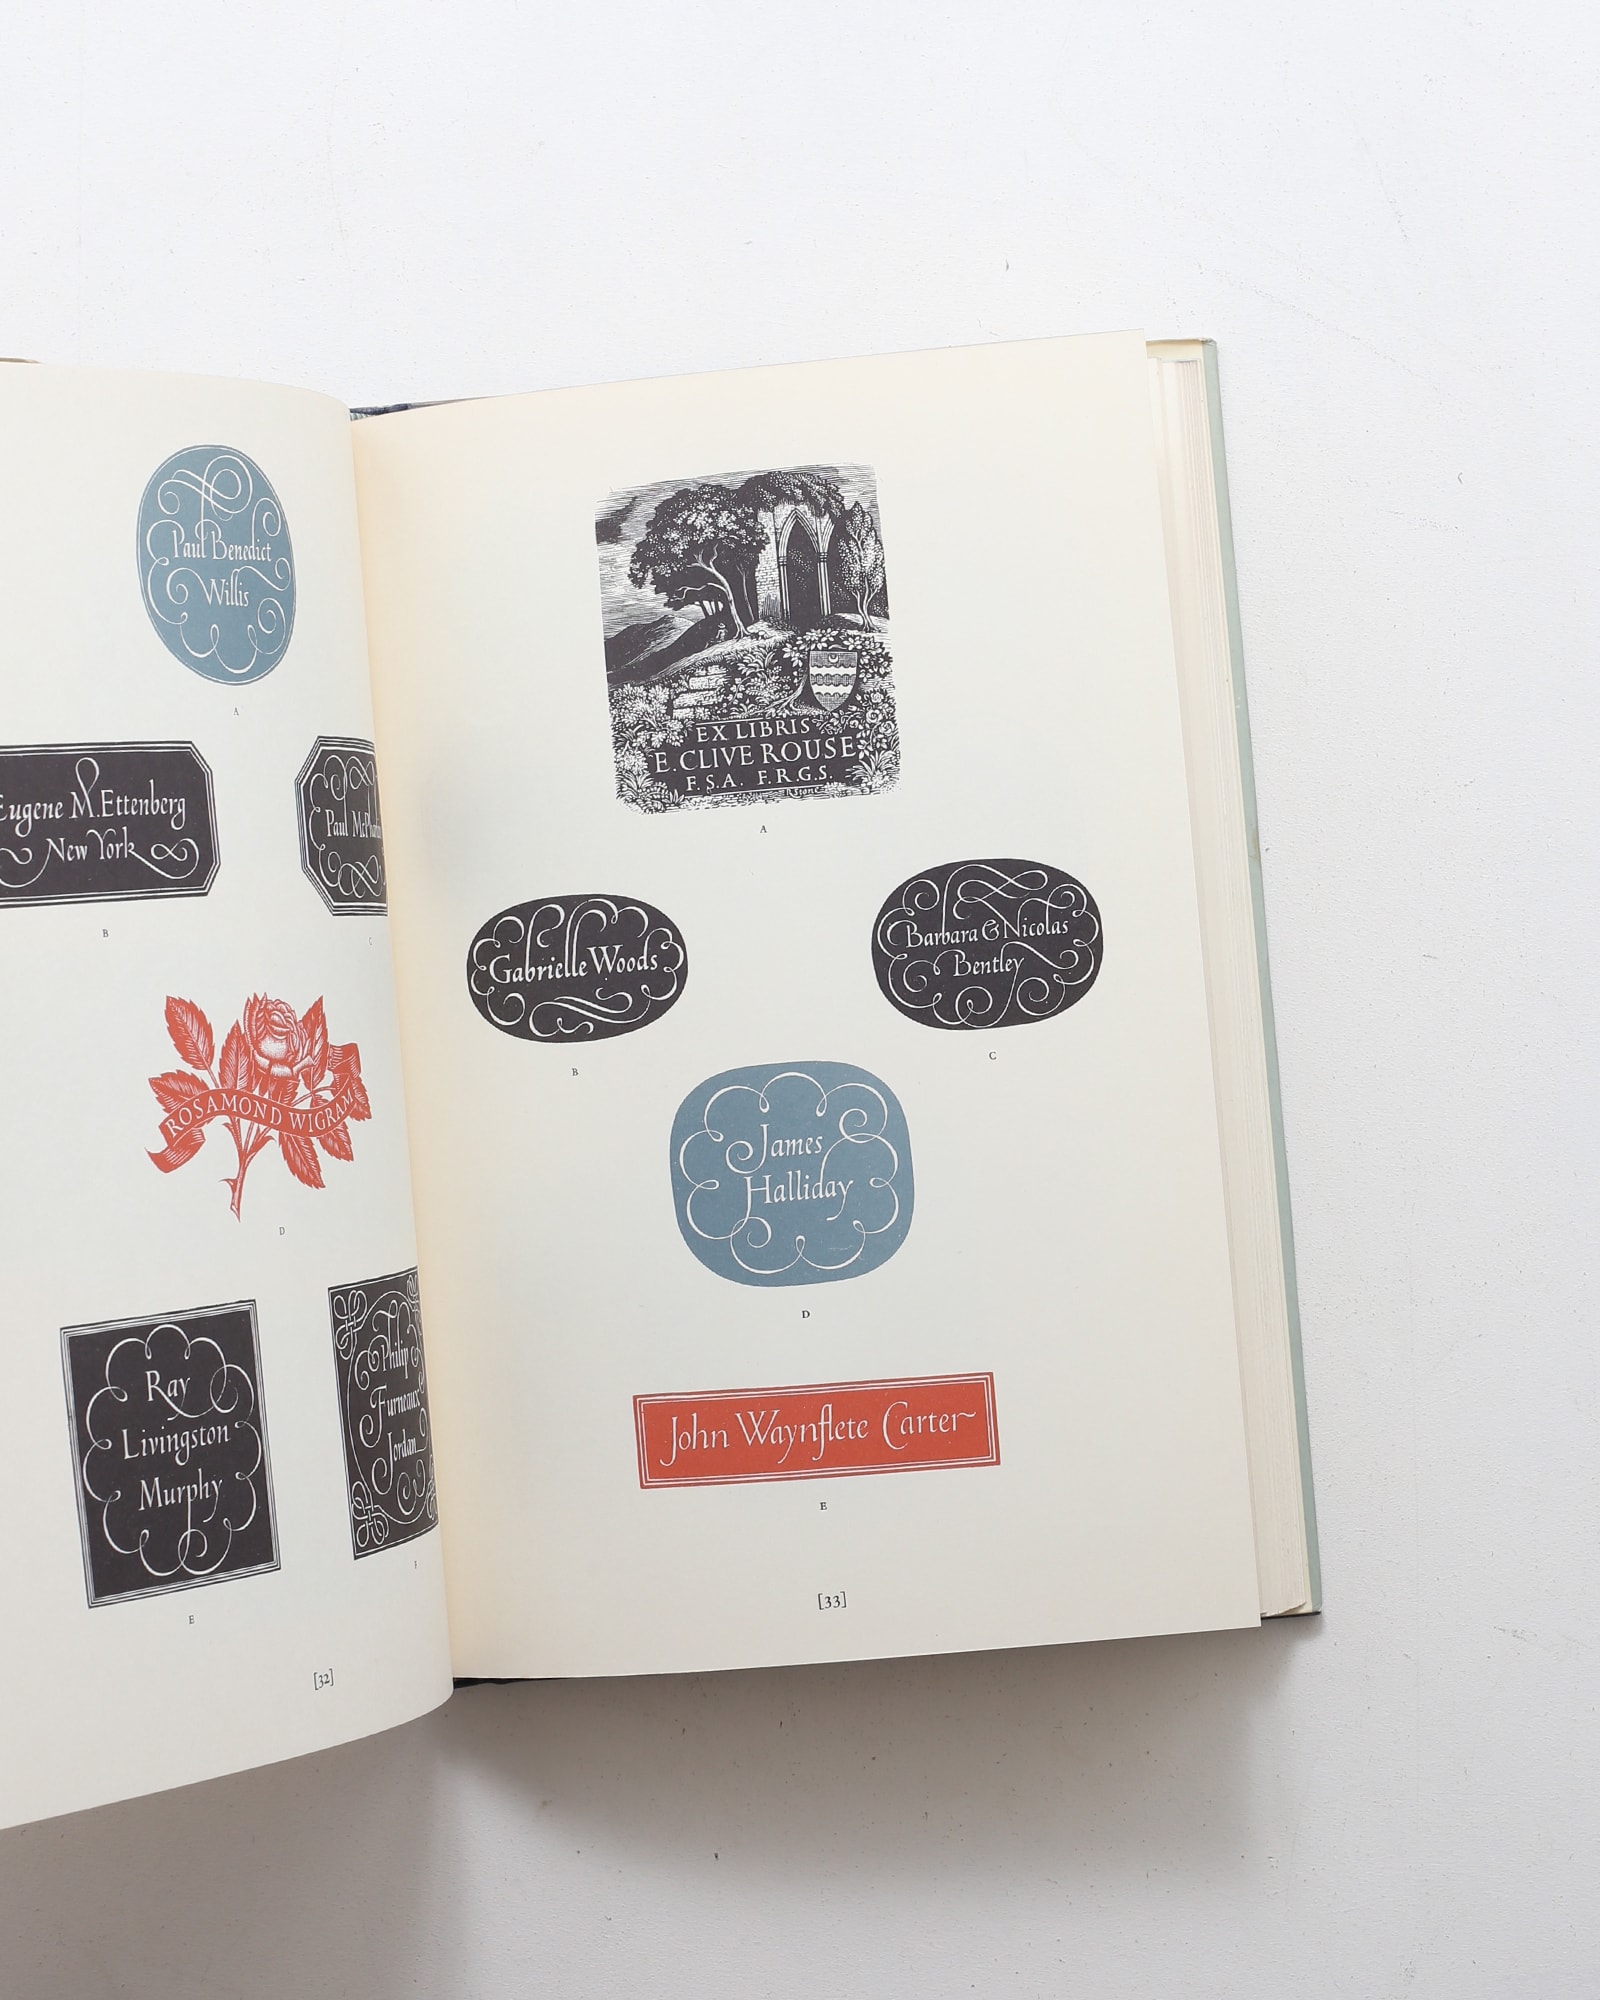 Paul Benedict
Willis
A
Eugene M. Ettenberg
New York
B
Paul
C
ROSAMOND WIGRAM
D
Ray
Livingston
Murphy
E
Philip
Furneaux
Jordan
F
[32]
EX LIBRIS
E. CLIVE ROUSE
F.S.A. F.R.G.S.
RStone
A
Gabrielle Woods
B
Barbara & Nicolas
Bentley
C
James
Halliday
D
John Waynflete Carter
E
[33]